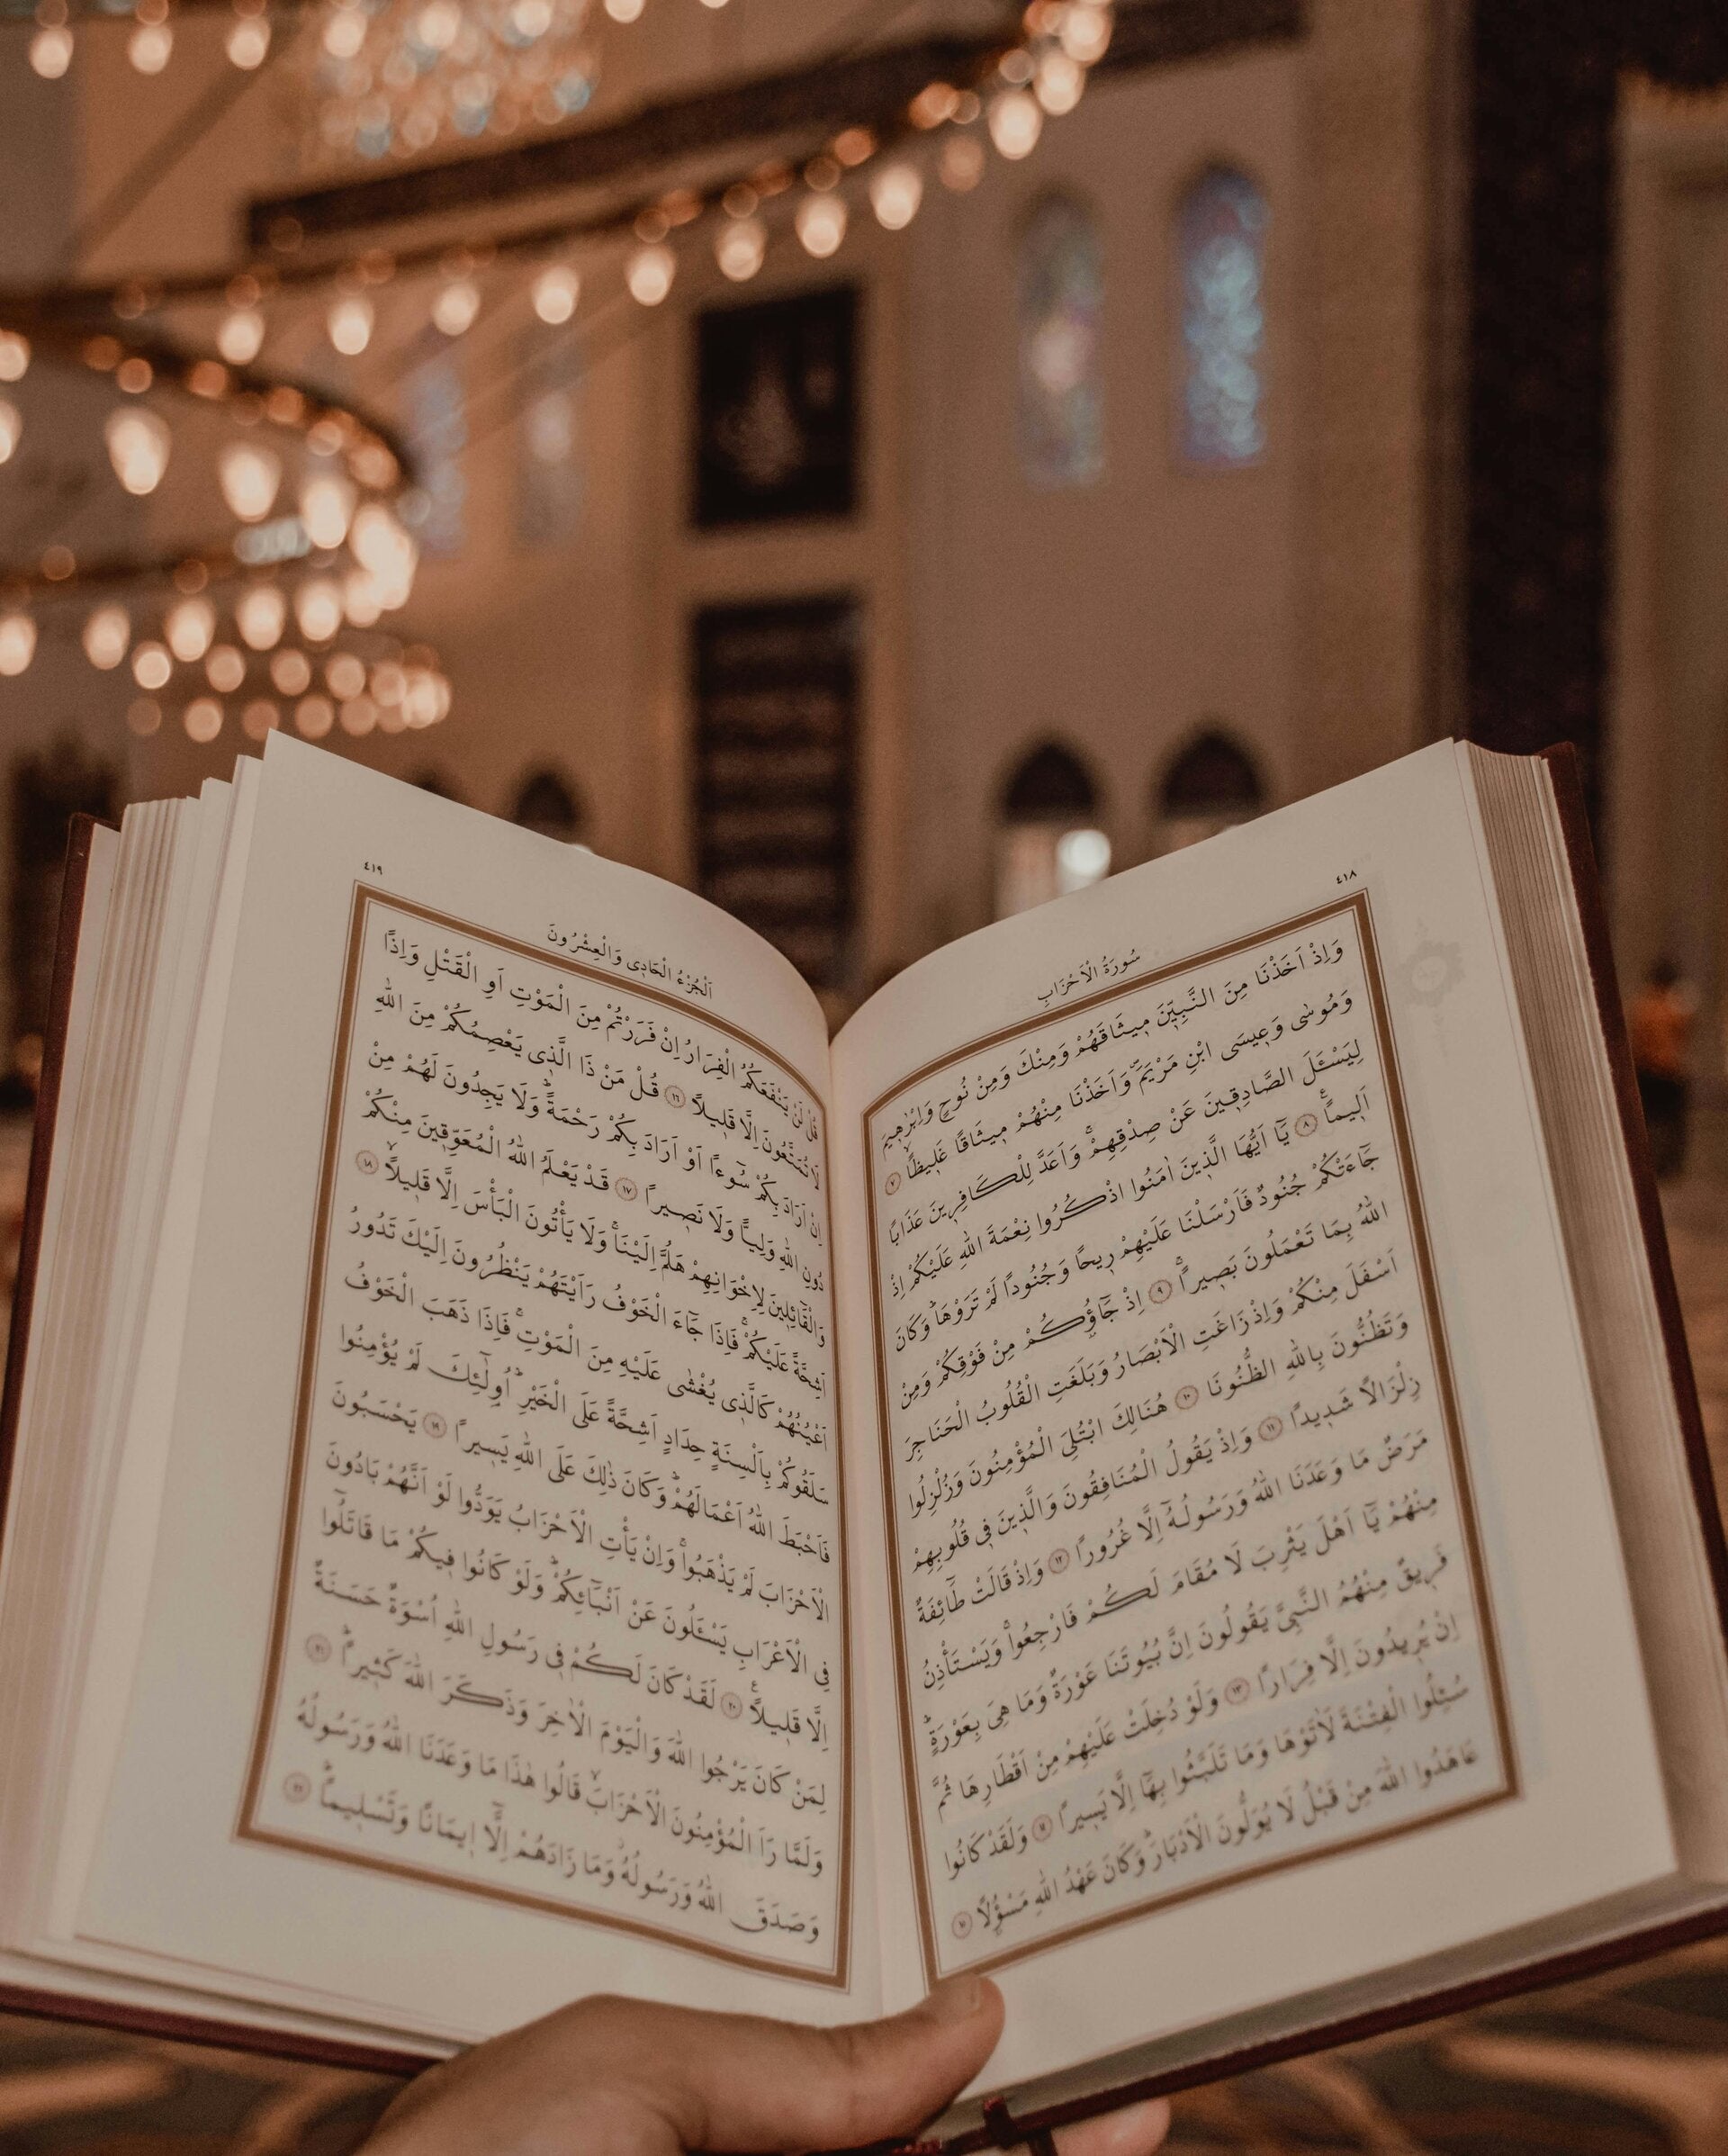 ٤١٨
سُورَةُ الْاَحْزَابِ
وَاِذْ اَخَذْنَا مِنَ النَّبِيّٖنَ مٖيثَاقَهُمْ وَمِنْكَ وَمِنْ نُوحٍ وَاِبْرٰهٖيمَ
وَمُوسٰى وَعٖيسَى ابْنِ مَرْيَمَۖ وَاَخَذْنَا مِنْهُمْ مٖيثَاقًا غَلٖيظًاۙ ﴿٧﴾
لِيَسْـَٔلَ الصَّادِقٖينَ عَنْ صِدْقِهِمْۚ وَاَعَدَّ لِلْكَافِرٖينَ عَذَابًا
اَلٖيمًاۚ ﴿٨﴾ يَٓا اَيُّهَا الَّذٖينَ اٰمَنُوا اذْكُرُوا نِعْمَةَ اللّٰهِ عَلَيْكُمْ اِذْ
جَٓاءَتْكُمْ جُنُودٌ فَاَرْسَلْنَا عَلَيْهِمْ رٖيحًا وَجُنُودًا لَمْ تَرَوْهَاۜ وَكَانَ
اللّٰهُ بِمَا تَعْمَلُونَ بَصٖيرًاۚ ﴿٩﴾ اِذْ جَٓاؤُ۫كُمْ مِنْ فَوْقِكُمْ وَمِنْ
اَسْفَلَ مِنْكُمْ وَاِذْ زَاغَتِ الْاَبْصَارُ وَبَلَغَتِ الْقُلُوبُ الْحَنَاجِرَ
وَتَظُنُّونَ بِاللّٰهِ الظُّنُونَا ﴿١٠﴾ هُنَالِكَ ابْتُلِيَ الْمُؤْمِنُونَ وَزُلْزِلُوا
زِلْزَالًا شَدٖيدًا ﴿١١﴾ وَاِذْ يَقُولُ الْمُنَافِقُونَ وَالَّذٖينَ فٖى قُلُوبِهِمْ
مَرَضٌ مَا وَعَدَنَا اللّٰهُ وَرَسُولُهُٓ اِلَّا غُرُورًا ﴿١٢﴾ وَاِذْ قَالَتْ طَٓائِفَةٌ
مِنْهُمْ يَٓا اَهْلَ يَثْرِبَ لَا مُقَامَ لَكُمْ فَارْجِعُواۚ وَيَسْتَأْذِنُ
فَرٖيقٌ مِنْهُمُ النَّبِيَّ يَقُولُونَ اِنَّ بُيُوتَنَا عَوْرَةٌ وَمَا هِيَ بِعَوْرَةٍۜ
اِنْ يُرٖيدُونَ اِلَّا فِرَارًا ﴿١٣﴾ وَلَوْ دُخِلَتْ عَلَيْهِمْ مِنْ اَقْطَارِهَا ثُمَّ
سُئِلُوا الْفِتْنَةَ لَاٰتَوْهَا وَمَا تَلَبَّثُوا بِهَٓا اِلَّا يَسٖيرًا ﴿١٤﴾ وَلَقَدْ كَانُوا
عَاهَدُوا اللّٰهَ مِنْ قَبْلُ لَا يُوَلُّونَ الْاَدْبَارَۜ وَكَانَ عَهْدُ اللّٰهِ مَسْؤُ۫لًا ﴿١٥﴾
٤١٩
اَلْجُزْءُ الْحَادٖى وَالْعِشْرُونَ
قُلْ لَنْ يَنْفَعَكُمُ الْفِرَارُ اِنْ فَرَرْتُمْ مِنَ الْمَوْتِ اَوِ الْقَتْلِ وَاِذًا
لَا تُمَتَّعُونَ اِلَّا قَلٖيلًا ﴿١٦﴾ قُلْ مَنْ ذَا الَّذٖى يَعْصِمُكُمْ مِنَ اللّٰهِ
اِنْ اَرَادَ بِكُمْ سُٓوءًا اَوْ اَرَادَ بِكُمْ رَحْمَةًۜ وَلَا يَجِدُونَ لَهُمْ مِنْ
دُونِ اللّٰهِ وَلِيًّا وَلَا نَصٖيرًا ﴿١٧﴾ قَدْ يَعْلَمُ اللّٰهُ الْمُعَوِّقٖينَ مِنْكُمْ
وَالْقَٓائِلٖينَ لِاِخْوَانِهِمْ هَلُمَّ اِلَيْنَاۚ وَلَا يَأْتُونَ الْبَأْسَ اِلَّا قَلٖيلًاۙ ﴿١٨﴾
اَشِحَّةً عَلَيْكُمْۚ فَاِذَا جَٓاءَ الْخَوْفُ رَاَيْتَهُمْ يَنْظُرُونَ اِلَيْكَ تَدُورُ
اَعْيُنُهُمْ كَالَّذٖى يُغْشٰى عَلَيْهِ مِنَ الْمَوْتِۚ فَاِذَا ذَهَبَ الْخَوْفُ
سَلَقُوكُمْ بِاَلْسِنَةٍ حِدَادٍ اَشِحَّةً عَلَى الْخَيْرِۜ اُو۬لٰٓئِكَ لَمْ يُؤْمِنُوا
فَاَحْبَطَ اللّٰهُ اَعْمَالَهُمْۜ وَكَانَ ذٰلِكَ عَلَى اللّٰهِ يَسٖيرًا ﴿١٩﴾ يَحْسَبُونَ
الْاَحْزَابَ لَمْ يَذْهَبُواۚ وَاِنْ يَأْتِ الْاَحْزَابُ يَوَدُّوا لَوْ اَنَّهُمْ بَادُونَ
فِى الْاَعْرَابِ يَسْـَٔلُونَ عَنْ اَنْبَٓائِكُمْۜ وَلَوْ كَانُوا فٖيكُمْ مَا قَاتَلُٓوا
اِلَّا قَلٖيلًا۟ ﴿٢٠﴾ لَقَدْ كَانَ لَكُمْ فٖى رَسُولِ اللّٰهِ اُسْوَةٌ حَسَنَةٌ
لِمَنْ كَانَ يَرْجُوا اللّٰهَ وَالْيَوْمَ الْاٰخِرَ وَذَكَرَ اللّٰهَ كَثٖيرًاۜ ﴿٢١﴾
وَلَمَّا رَاَ الْمُؤْمِنُونَ الْاَحْزَابَۙ قَالُوا هٰذَا مَا وَعَدَنَا اللّٰهُ وَرَسُولُهُ
وَصَدَقَ اللّٰهُ وَرَسُولُهُۘ وَمَا زَادَهُمْ اِلَّٓا اٖيمَانًا وَتَسْلٖيمًاۜ ﴿٢٢﴾